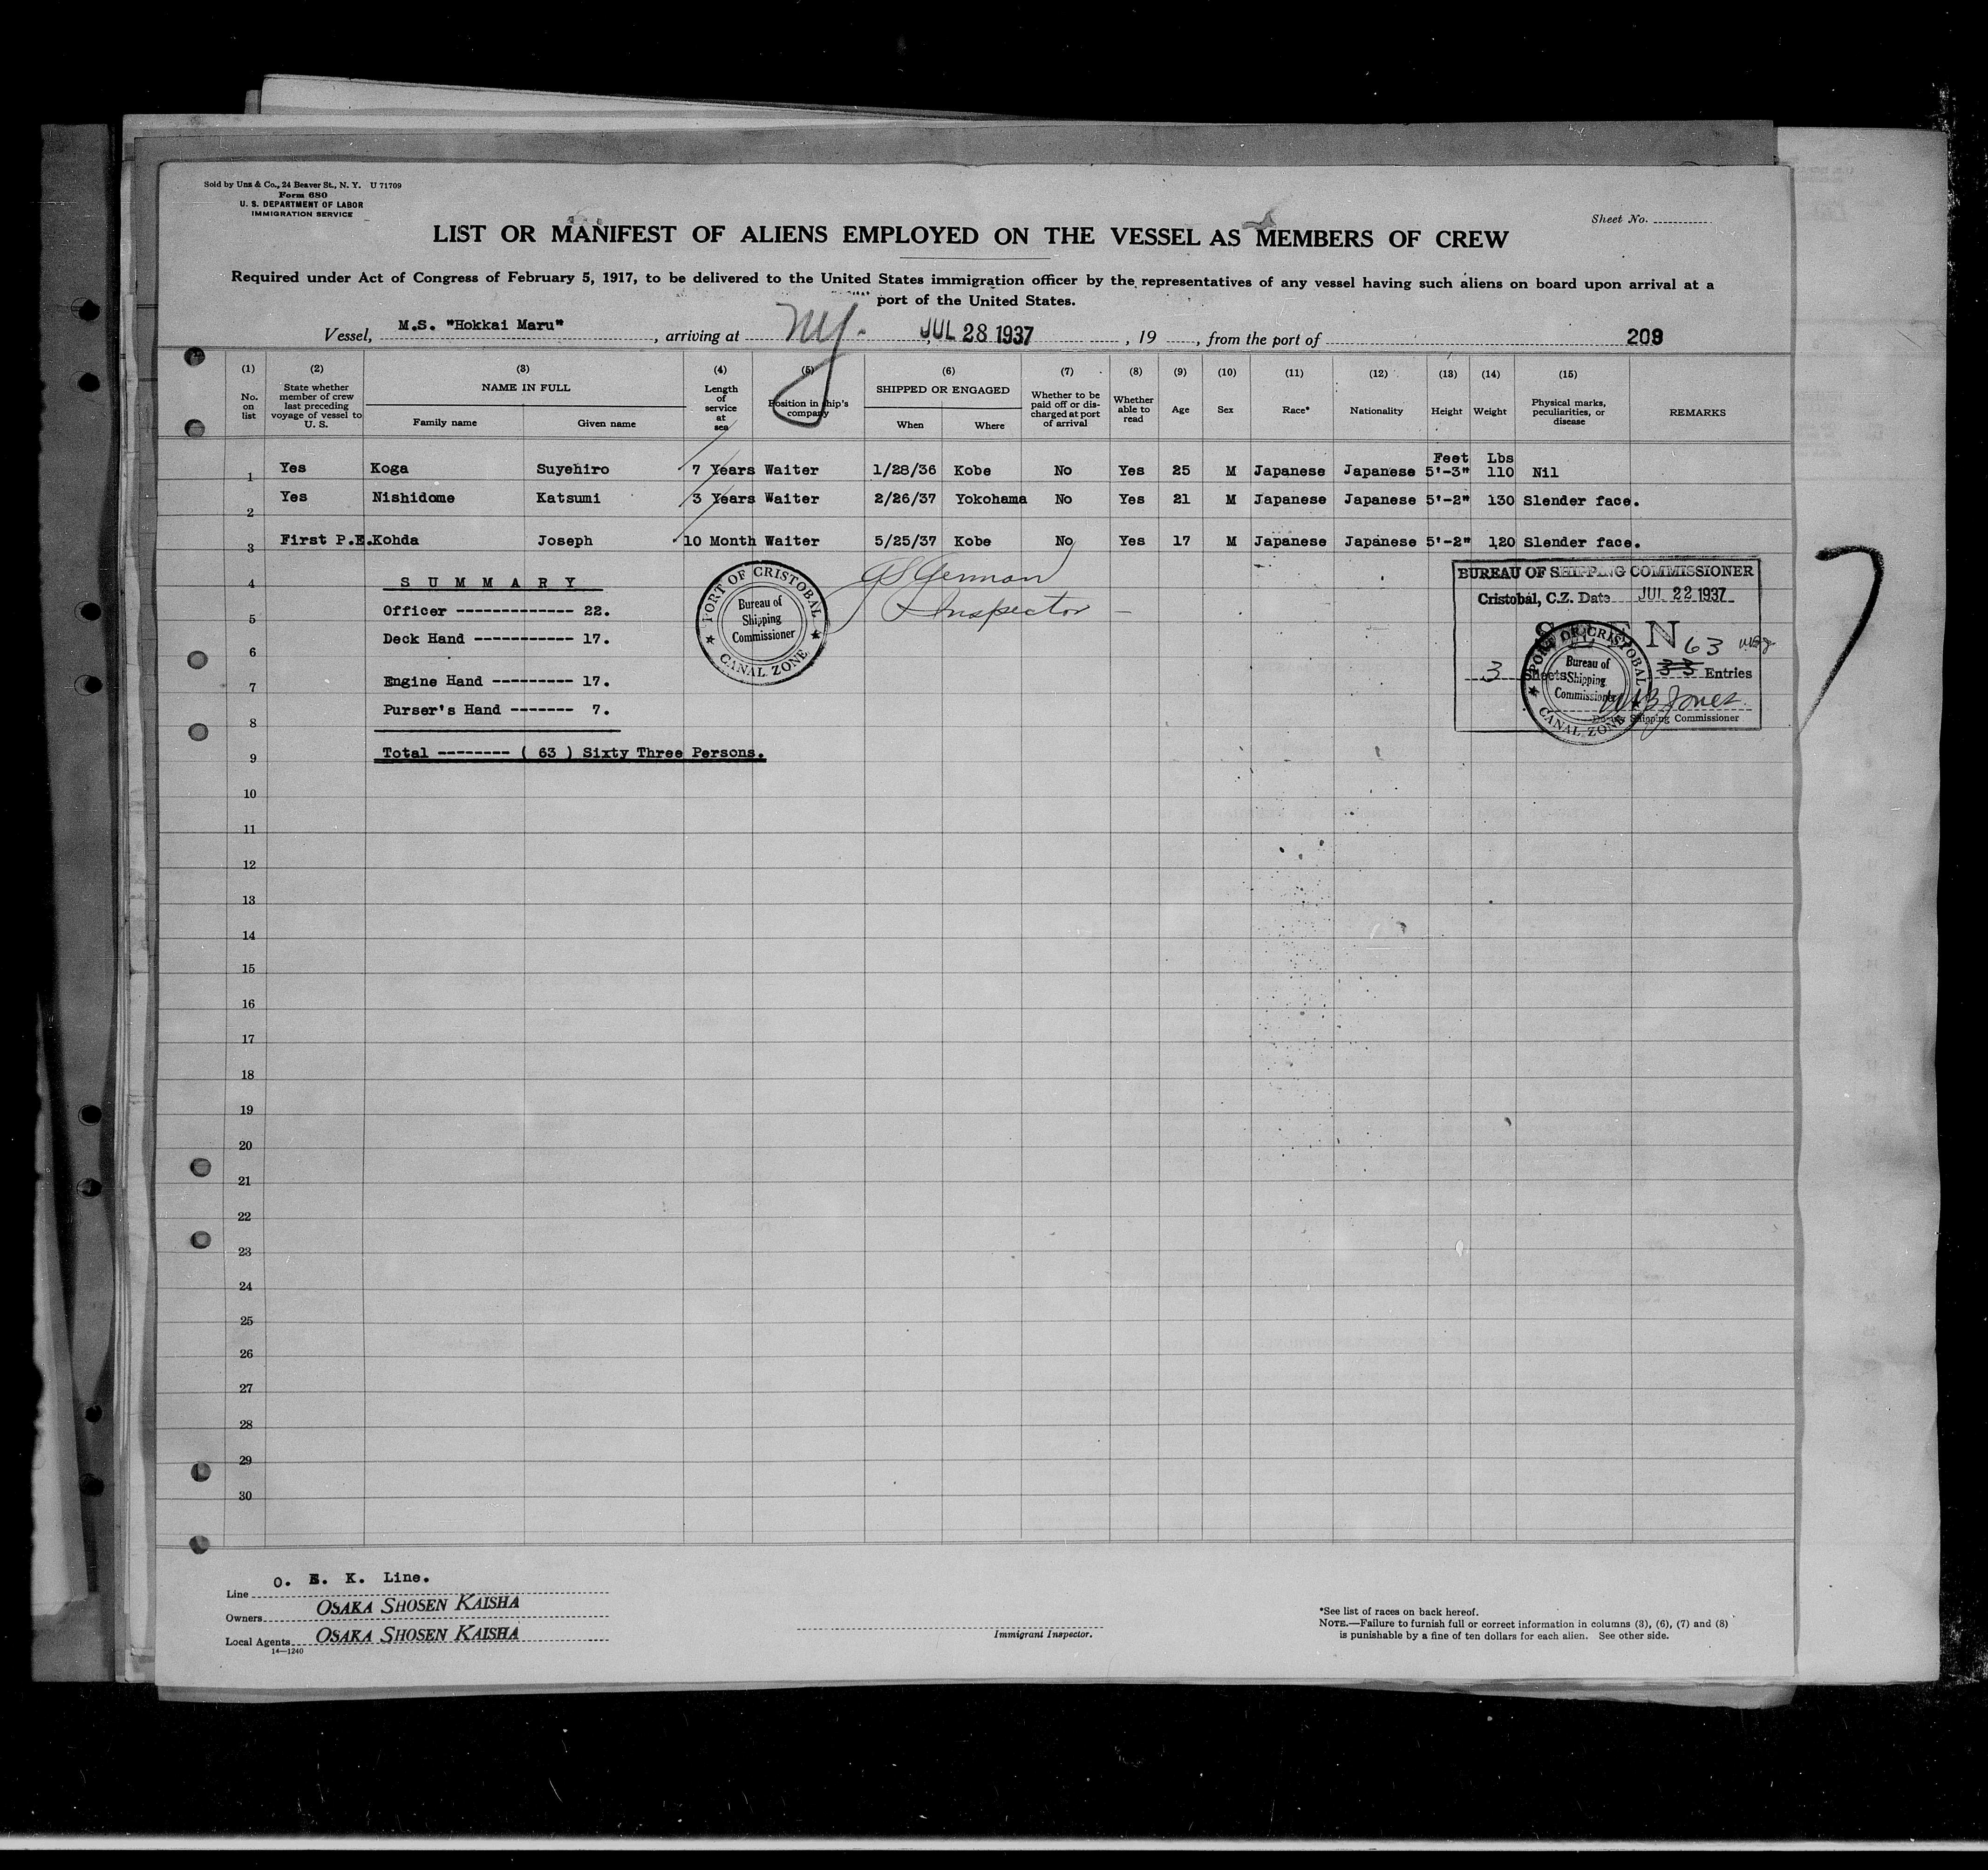 Sold by Unz & Co., 24 Beaver St., N. Y. U 71709
Form 680
U. S. DEPARTMENT OF LABOR
IMMIGRATION SERVICE
Sheet No.
LIST OR MANIFEST OF ALIENS EMPLOYED ON THE VESSEL AS MEMBERS OF CREW
Required under Act of Congress of February 5, 1917, to be delivered to the United States immigration officer by the representatives of any vessel having such aliens on board upon arrival at a
port of the United States.
Vessel, M.S. "Hokkai Maru", arriving at NY. JUL 28 1937, 19, from the port of 209
(1) (2) (3) (4) (5) (6) (7) (8) (9) (10) (11) (12) (13) (14) (15)
No. on list
State whether member of crew last preceding voyage of vessel to U. S.
NAME IN FULL
Family name Given name
Length of service at sea
Position in ship's company
SHIPPED OR ENGAGED
When Where
Whether to be paid off or discharged at port of arrival
Whether able to read
Age Sex Race* Nationality Height Weight
Physical marks, peculiarities, or disease
REMARKS
Feet Lbs
1 Yes Koga Suyehiro 7 Years Waiter 1/28/36 Kobe No Yes 25 M Japanese Japanese 5'-3" 110 Nil
2 Yes Nishidome Katsumi 3 Years Waiter 2/26/37 Yokohama No Yes 21 M Japanese Japanese 5'-2" 130 Slender face.
3 First P.E. Kohda Joseph 10 Month Waiter 5/25/37 Kobe No Yes 17 M Japanese Japanese 5'-2" 120 Slender face.
4 SUMMARY
5 Officer ------------- 22.
6 Deck Hand ----------- 17.
7 Engine Hand --------- 17.
8 Purser's Hand ------- 7.
9 Total -------- ( 63 ) Sixty Three Persons.
PORT OF CRISTOBAL
Bureau of
Shipping
Commissioner
CANAL ZONE
GS German
Inspector
BUREAU OF SHIPPING COMMISSIONER
Cristobal, C.Z. Date JUL 22 1937
SEEN
63
3 Sheets 33 Entries
PORT OF CRISTOBAL
Bureau of
Shipping
Commissioner
CANAL ZONE
WB Jones
Deputy Shipping Commissioner
7
10
11
12
13
14
15
16
17
18
19
20
21
22
23
24
25
26
27
28
29
30
Line O. S. K. Line.
Owners OSAKA SHOSEN KAISHA
Local Agents OSAKA SHOSEN KAISHA
14—1240
Immigrant Inspector.
*See list of races on back hereof.
NOTE.—Failure to furnish full or correct information in columns (3), (6), (7) and (8)
is punishable by a fine of ten dollars for each alien. See other side.